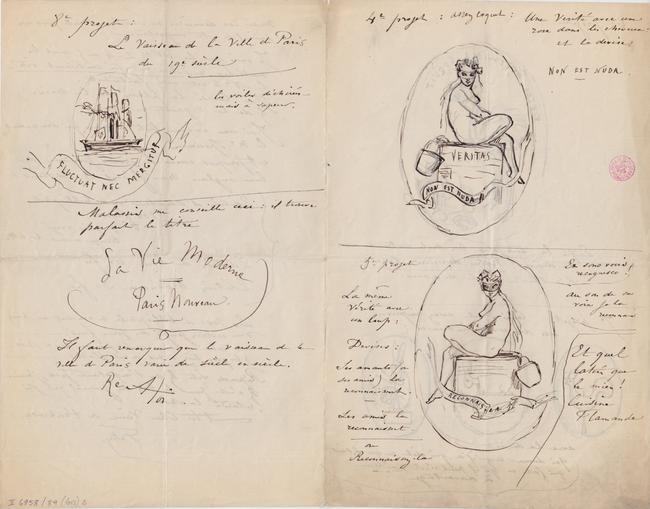 8e projet :
Le Vaisseau de la Ville de Paris
du 19e siècle
les voiles déchirées
mais à vapeur.
FLUCTUAT NEC MERGITUR
Malassis me conseille ceci : il trouve
parfait le titre
La Vie Moderne
Paris Nouveau
Il faut remarquer que le vaisseau de la
ville de Paris varie de siècle en siècle.
I 6958/39
4e projet : assez coquet :
Une Vérité avec une
rose dans les cheveux
et la devise :
NON EST NUDA
VERITAS
NON EST NUDA
5e projet
La même
Vérité avec
un loup ;
Devises :
Ses amants (ou
ses amis) la
reconnaissent.
Les amis la
reconnaissent
ou
Reconnaissez-la
RECONNAIS
au son de sa
voix je la
Et quel
latin que
le mien !
Cuisine
Flamande